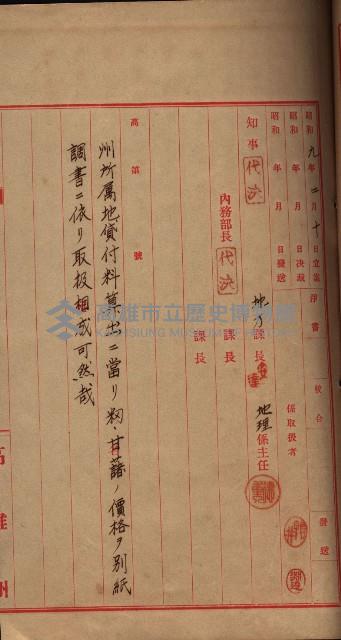 昭和九年二月十日立案 淨書 校合 發送
昭和 年 月 日決裁 係取扱者
昭和 年 月 日發送 地理係主任
知事 代決 地方課長
內務部長 代決 課長
課長
高 第 號
州所属地貸付料算出ニ當リ籾、甘藷ノ價格ヲ別紙
調書ニ依リ取扱相成可然哉
高雄市立歷史博物館
KAOHSIUNG MUSEUM OF HISTORY
高雄州